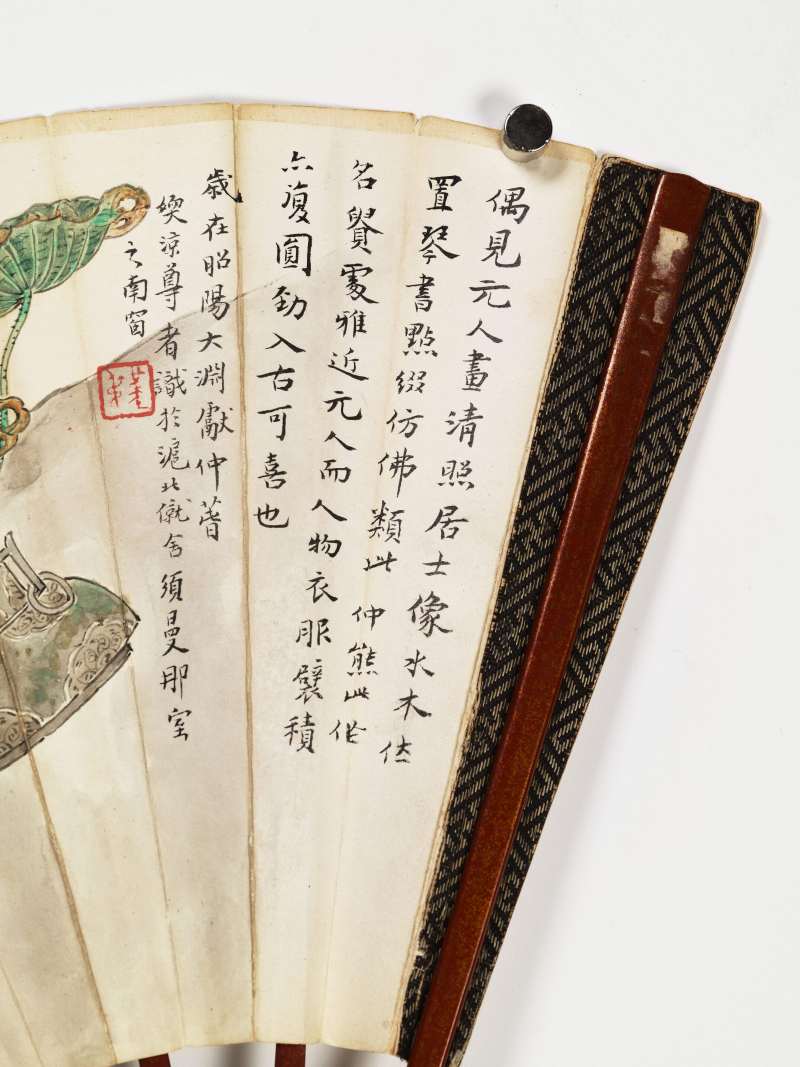 偶見元人畫清照居士像水木佳
置琴書點綴仿佛類此仲熊此作
名貲處雅近元人而人物衣服襞積
亦復圓勁入古可喜也
歲在昭陽大淵獻仲莫
緛涼尊者識於滬北僦舍須曼那室
之南窗